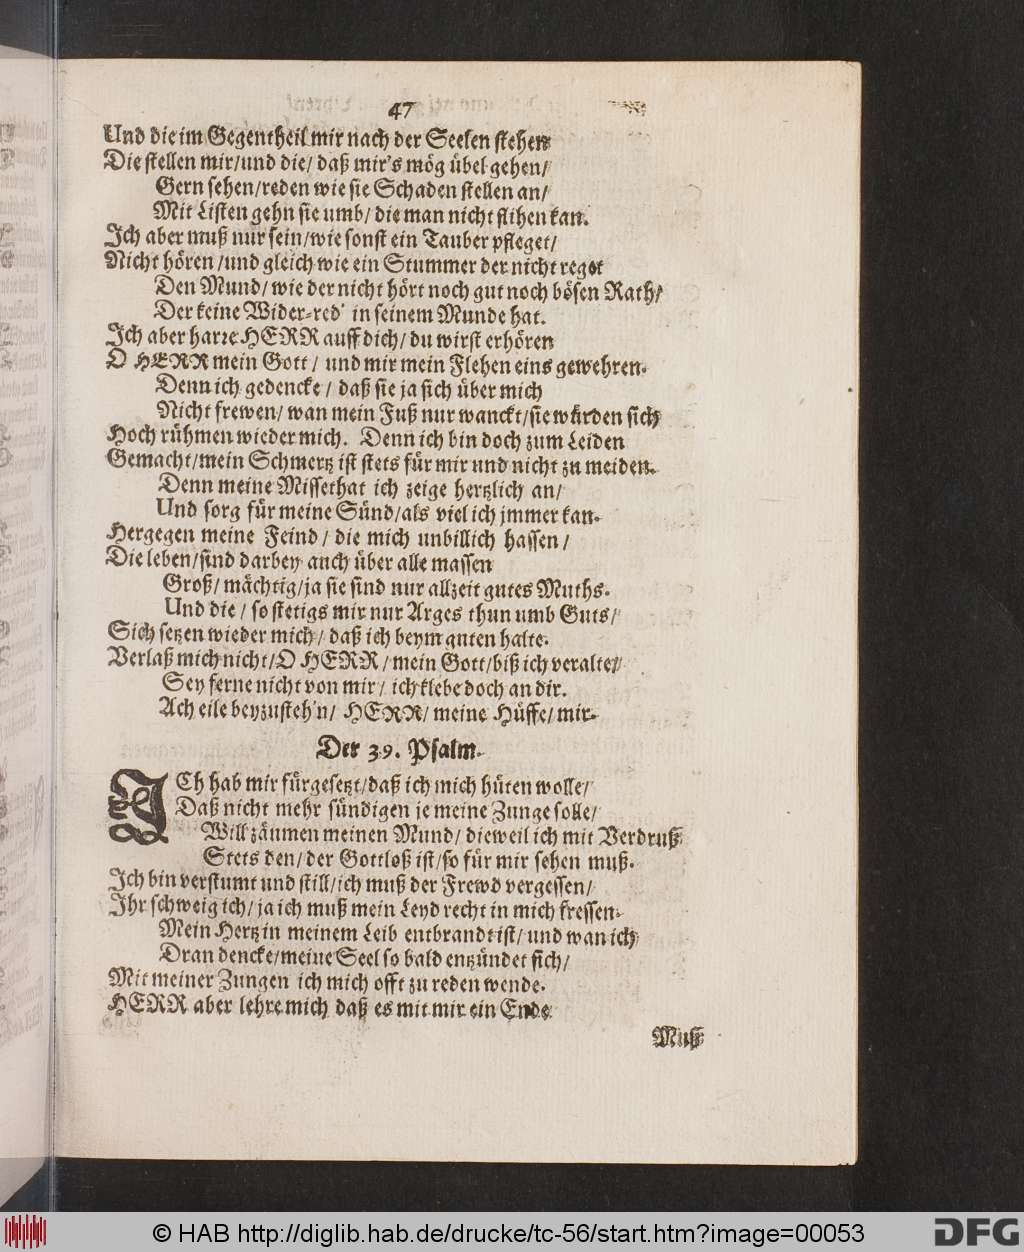 47
Und die im Gegentheil mir nach der Seelen stehen
Die stellen mir/und die/ daß mir's mög übel gehen/
Gern sehen/reden wie sie Schaden stellen an/
Mit Listen gehn sie umb/ die man nicht flihen kan.
Ich aber muß nur sein/wie sonst ein Tauber pfleget/
Nicht hören/und gleich wie ein Stummer der nicht reget
Den Mund/ wie der nicht hört noch gut noch bösen Rath/
Der keine Wider-red' in seinem Munde hat.
Ich aber harre HERR auff dich/ du wirst erhören
O HERR mein Gott/ und mir mein Flehen eins gewehren.
Denn ich gedencke/ daß sie ja sich über mich
Nicht frewen/ wan mein Fuß nur wanckt/sie würden sich
Hoch rühmen wieder mich. Denn ich bin doch zum Leiden
Gemacht/mein Schmertz ist stets für mir und nicht zu meiden.
Denn meine Missethat ich zeige hertzlich an/
Und sorg für meine Sünd/als viel ich jmmer kan.
Hergegen meine Feind/ die mich unbillich hassen/
Die leben/sind darbey auch über alle massen
Groß/ mächtig/ja sie sind nur allzeit gutes Muths.
Und die/ so stetigs mir nur Arges thun umb Guts/
Sich setzen wieder mich/ daß ich beym guten halte.
Verlaß mich nicht/O HERR/mein Gott/biß ich veralte/
Sey ferne nicht von mir/ ich klebe doch an dir.
Ach eile beyzusteh'n/ HERR/ meine Hülffe/ mir.
Der 39. Psalm.
ICh hab mir fürgesetzt/daß ich mich hüten wolle/
Daß nicht mehr sündigen je meine Zunge solle/
Will zäumen meinen Mund/ dieweil ich mit Verdruß
Stets den/ der Gottloß ist/so für mir sehen muß.
Ich bin verstumt und still/ich muß der Frewd vergessen/
Ihr schweig ich/ ja ich muß mein Leyd recht in mich fressen.
Mein Hertz in meinem Leib entbrandt ist/ und wan ich
Dran dencke/meine Seel so bald entzündet sich/
Mit meiner Zungen ich mich offt zu reden wende.
HERR aber lehre mich daß es mit mir ein Ende
Muß
© HAB http://diglib.hab.de/drucke/tc-56/start.htm?image=00053
DFG